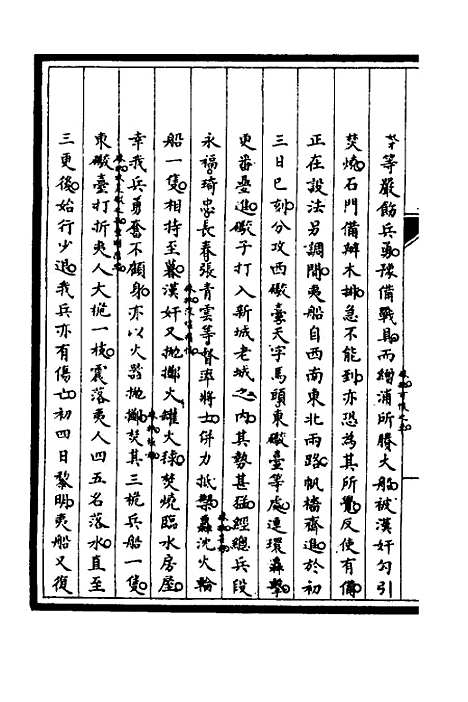 等嚴飭兵勇豫備戰具而繒消所賸大船被漢奸勾引
焚燒石門備辦木排急不能到亦恐為其所覺反使有備
正在設法另調間夷船自西南東北兩路帆檣齊進於初
三日巳刻分攻西礮臺天字馬頭東礮臺等處連環轟擊
更番疊進礮子打入新城老城之內其勢甚猛經總兵段
永福琦忠長春張青雲等督率將士併力抵擊轟沈火輪
船一隻相持至暮漢奸又拋擲火罐火毬焚燒臨水房屋
幸我兵勇奮不顧身亦以火器拋擲焚其三桅兵船一隻
東礮臺打折夷人大桅一枝震落夷人四五名落水直至
三更後始行少退我兵亦有傷亡初四日黎明夷船又復